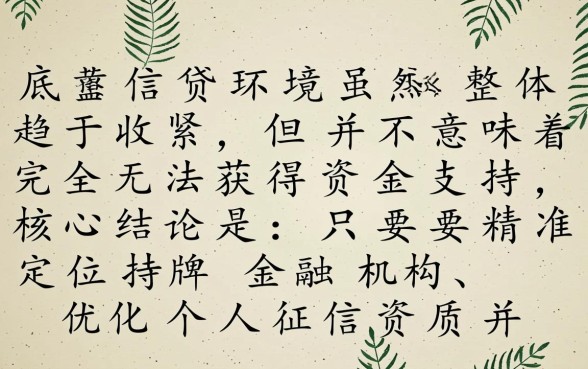 底 信贷环境虽然 整体
趋于收紧，但并不意味着
完全无法获得资金支持，
核心结论是：只要要精准
定位持牌 金融 机构、
优化个人征信资质并